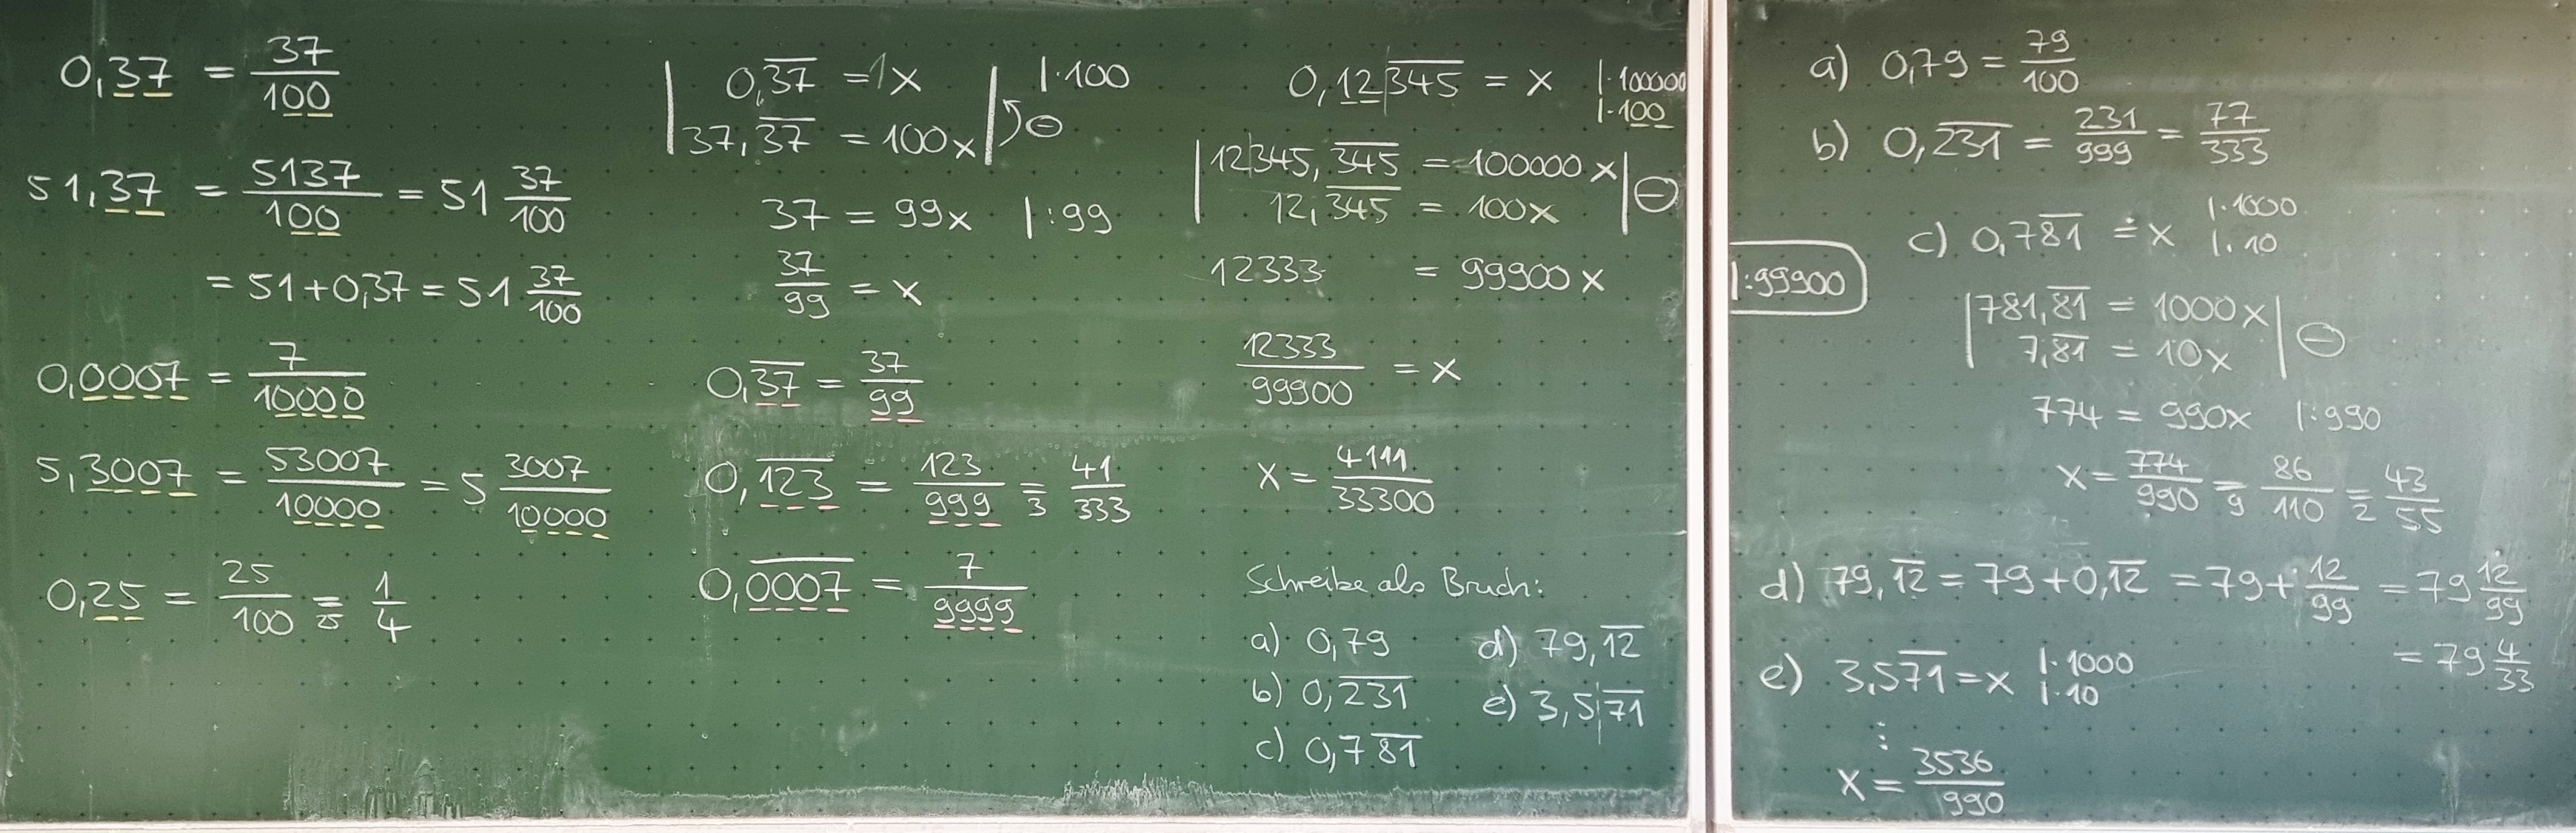 0,37 = 37/100
51,37 = 5137/100 = 51 37/100
= 51 + 0,37 = 51 37/100
0,0007 = 7/10000
5,3007 = 53007/10000 = 5 3007/10000
0,25 = 25/100 = 1/4
0,3̅7̅ = 1x |·100
37,3̅7̅ = 100x ⊖
37 = 99x |:99
37/99 = x
0,3̅7̅ = 37/99
0,1̅2̅3̅ = 123/999 =₃ 41/333
0,0̅0̅0̅7̅ = 7/9999
0,123̅4̅5̅ = x |·100000
|·100
12345,3̅4̅5̅ = 100000x
12,3̅4̅5̅ = 100x ⊖
12333 = 99900x |:99900
12333/99900 = x
x = 4111/33300
Schreibe als Bruch:
a) 0,79 d) 79,1̅2̅
b) 0,2̅3̅1̅ e) 3,57̅1̅
c) 0,78̅1̅
a) 0,79 = 79/100
b) 0,2̅3̅1̅ = 231/999 = 77/333
c) 0,78̅1̅ = x |·1000
|·10
781,8̅1̅ = 1000x
7,8̅1̅ = 10x ⊖
774 = 990x |:990
x = 774/990 =₉ 86/110 =₂ 43/55
d) 79,1̅2̅ = 79 + 0,1̅2̅ = 79 + 12/99 = 79 12/99
= 79 4/33
e) 3,57̅1̅ = x |·1000
|·10
⋮
x = 3536/990